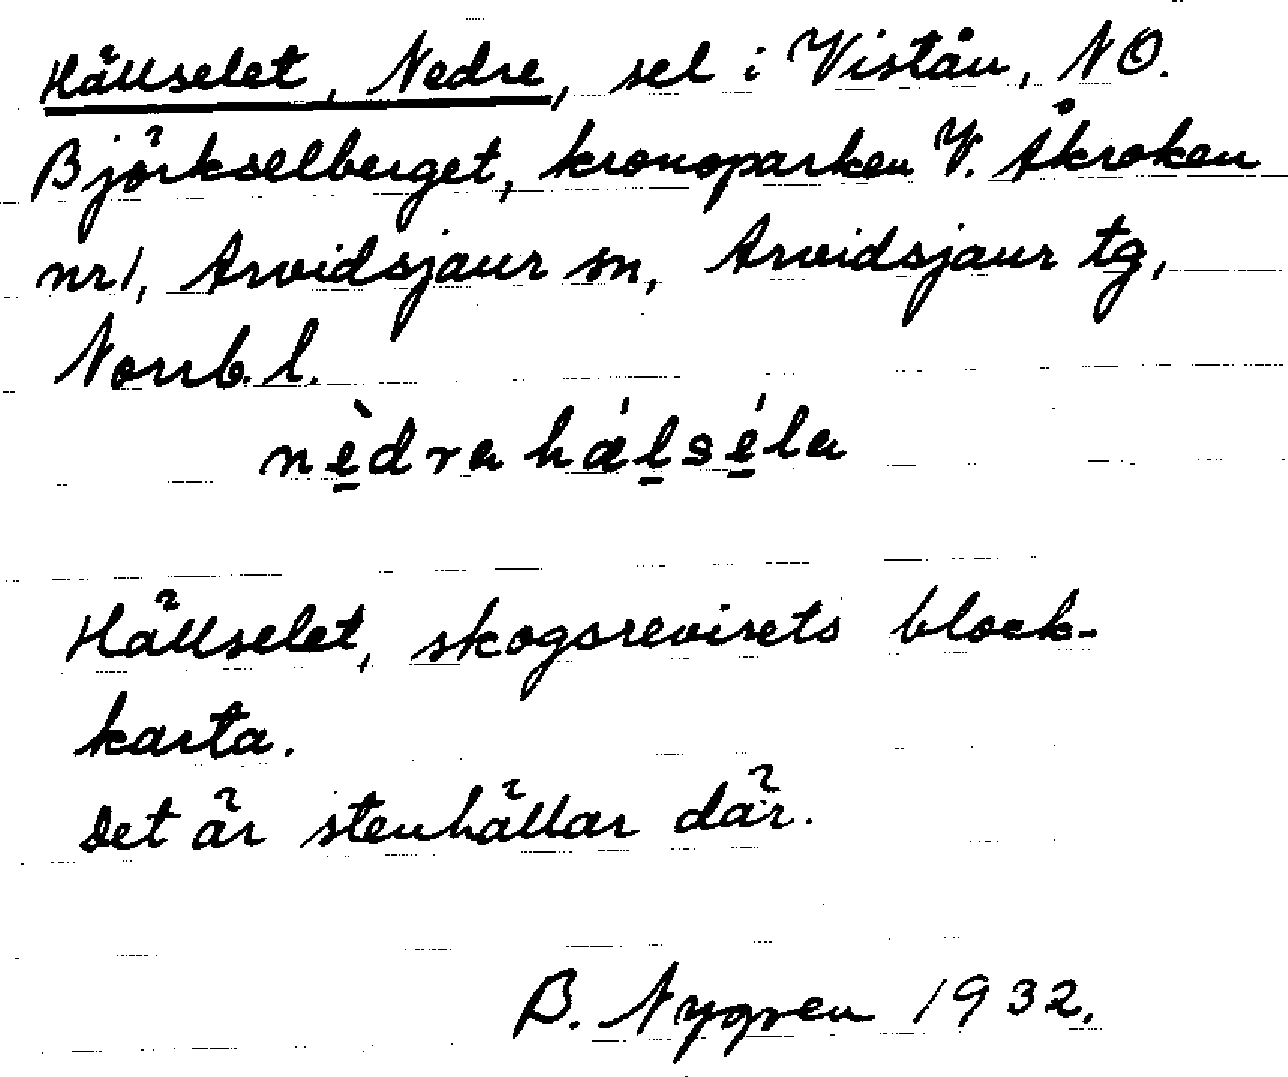 Hällselet, Nedre, sel i Vistån, NO.
Björkselberget, kronoparken V. Åkroken
nr 1, Arvidsjaur sn, Arvidsjaur tg,
Norrb. l.
nè̱drahá̱ḻsé̱la
Hällselet, skogsrevirets block-
karta.
Det är stenhällar där.
B. Nygren 1932.